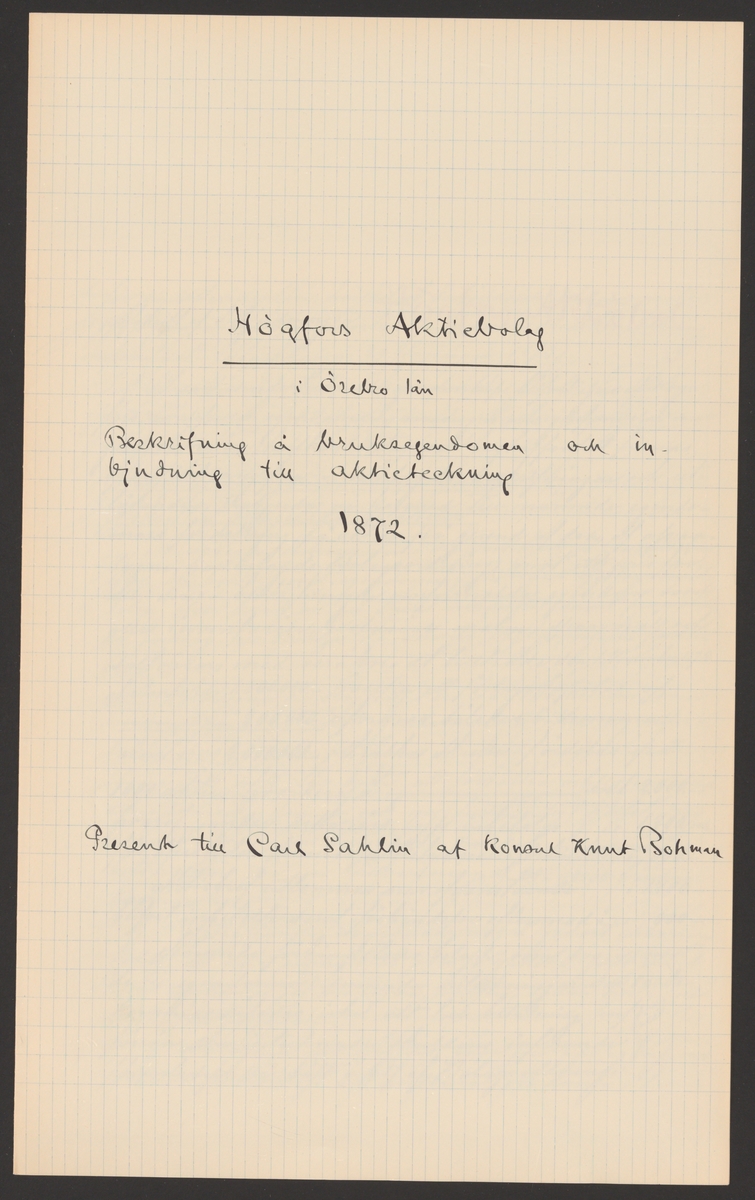 Högfors Aktiebolag
i Örebro län
Beskrifning å bruksegendomen och in-
bjudning till aktieteckning
1872.
Present till Carl Sahlin af Konsul Knut Bohman